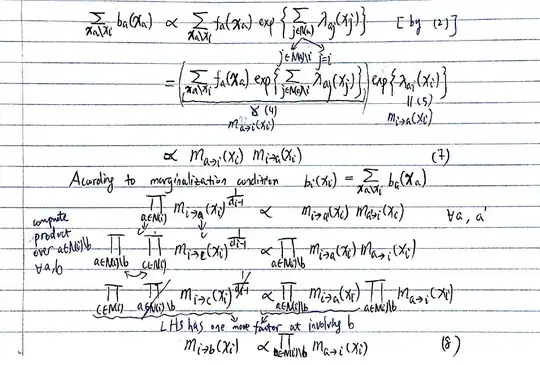 ∑_{x_a\x_i} b_a(x_a) ∝ ∑_{x_a\x_i} f_a(x_a) exp{∑_{j∈N(a)} λ_{aj}(x_j)} [by (2)]
j∈N(a)\i j=i
= (∑_{x_a\x_i} f_a(x_a) exp{∑_{j∈N(a)\i} λ_{aj}(x_j)}) exp{λ_{ai}(x_i)}
∝ (4) || (5)
m_{a→i}(x_i) m_{i→a}(x_i)
∝ m_{a→i}(x_i) m_{i→a}(x_i) (7)
According to marginalization condition b_i(x_i) = ∑_{x_a\x_i} b_a(x_a)
∏_{a∈N(i)} m_{i→a}(x_i)^{1/(d_i-1)} ∝ m_{i→a}(x_i) m_{a→i}(x_i) ∀a, a'
compute product over a∈N(i)\b ∀a,b
∏_{a∈N(i)\b} ∏_{c∈N(i)} m_{i→c}(x_i)^{1/(d_i-1)} ∝ ∏_{a∈N(i)\b} m_{i→a}(x_i) m_{a→i}(x_i)
∏_{c∈N(i)} ∏_{a∈N(i)\b} m_{i→c}(x_i)^{1/(d_i-1)} ∝ ∏_{a∈N(i)\b} m_{i→a}(x_i) ∏_{a∈N(i)\b} m_{a→i}(x_i)
LHS has one more factor at involving b
m_{i→b}(x_i) ∝ ∏_{a∈N(i)\b} m_{a→i}(x_i) (8)